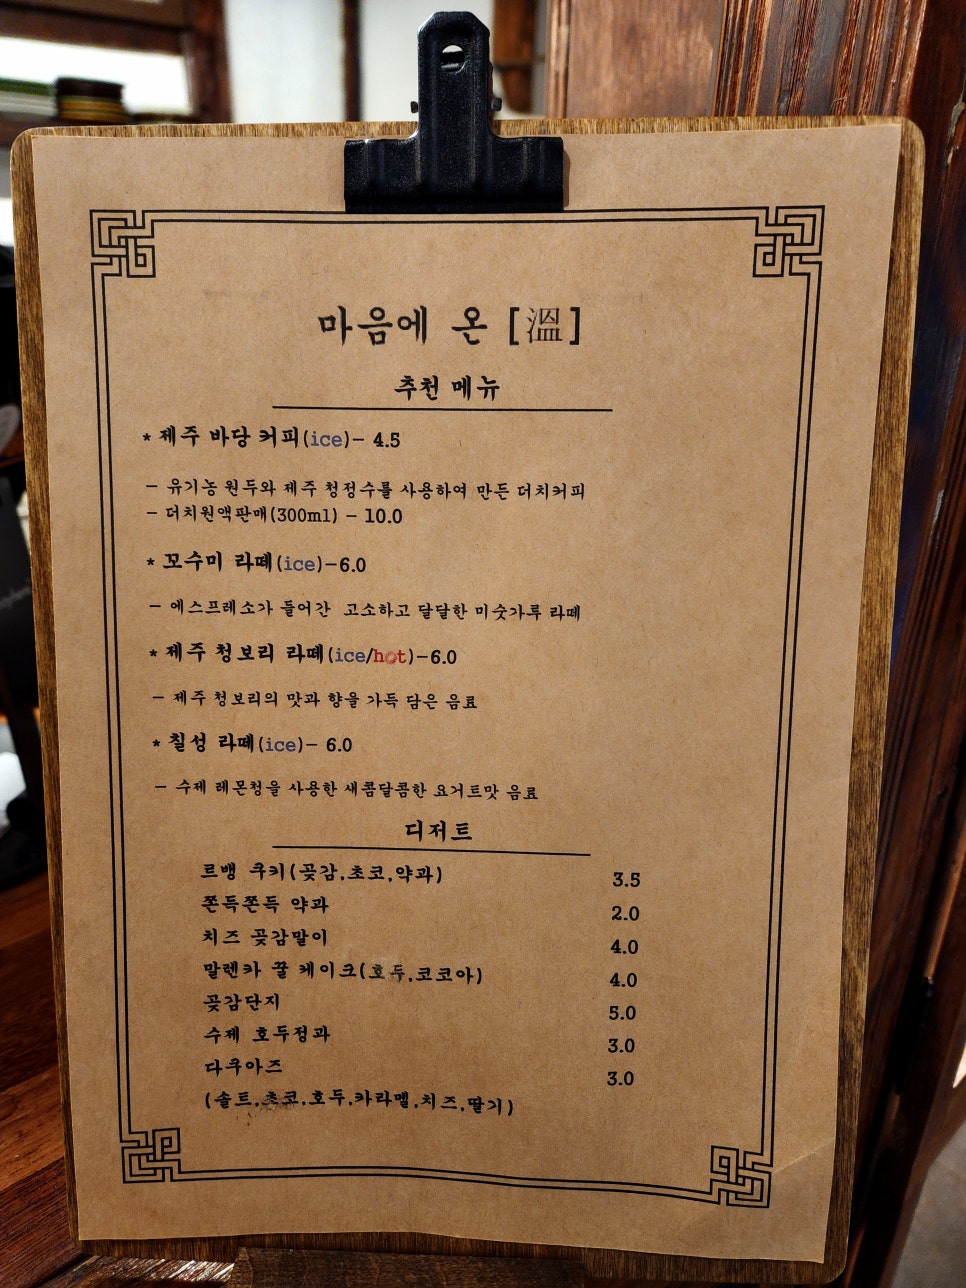 마음에 온 [溫]
추천 메뉴
* 제주 바당 커피(ice)- 4.5
- 유기농 원두와 제주 청정수를 사용하여 만든 더치커피
- 더치원액판매(300ml) - 10.0
* 꼬수미 라떼(ice)-6.0
- 에스프레소가 들어간 고소하고 달달한 미숫가루 라떼
* 제주 청보리 라떼(ice/hot)-6.0
- 제주 청보리의 맛과 향을 가득 담은 음료
* 칠성 라떼(ice)- 6.0
- 수제 레몬청을 사용한 새콤달콤한 요거트맛 음료
디저트
르뱅 쿠키(곶감,초코,약과) 3.5
쫀득쫀득 약과 2.0
치즈 곶감말이 4.0
말렌카 꿀 케이크(호두,코코아) 4.0
곶감단지 5.0
수제 호두정과 3.0
다쿠아즈 3.0
(솔트,초코,호두,카라멜,치즈,딸기)